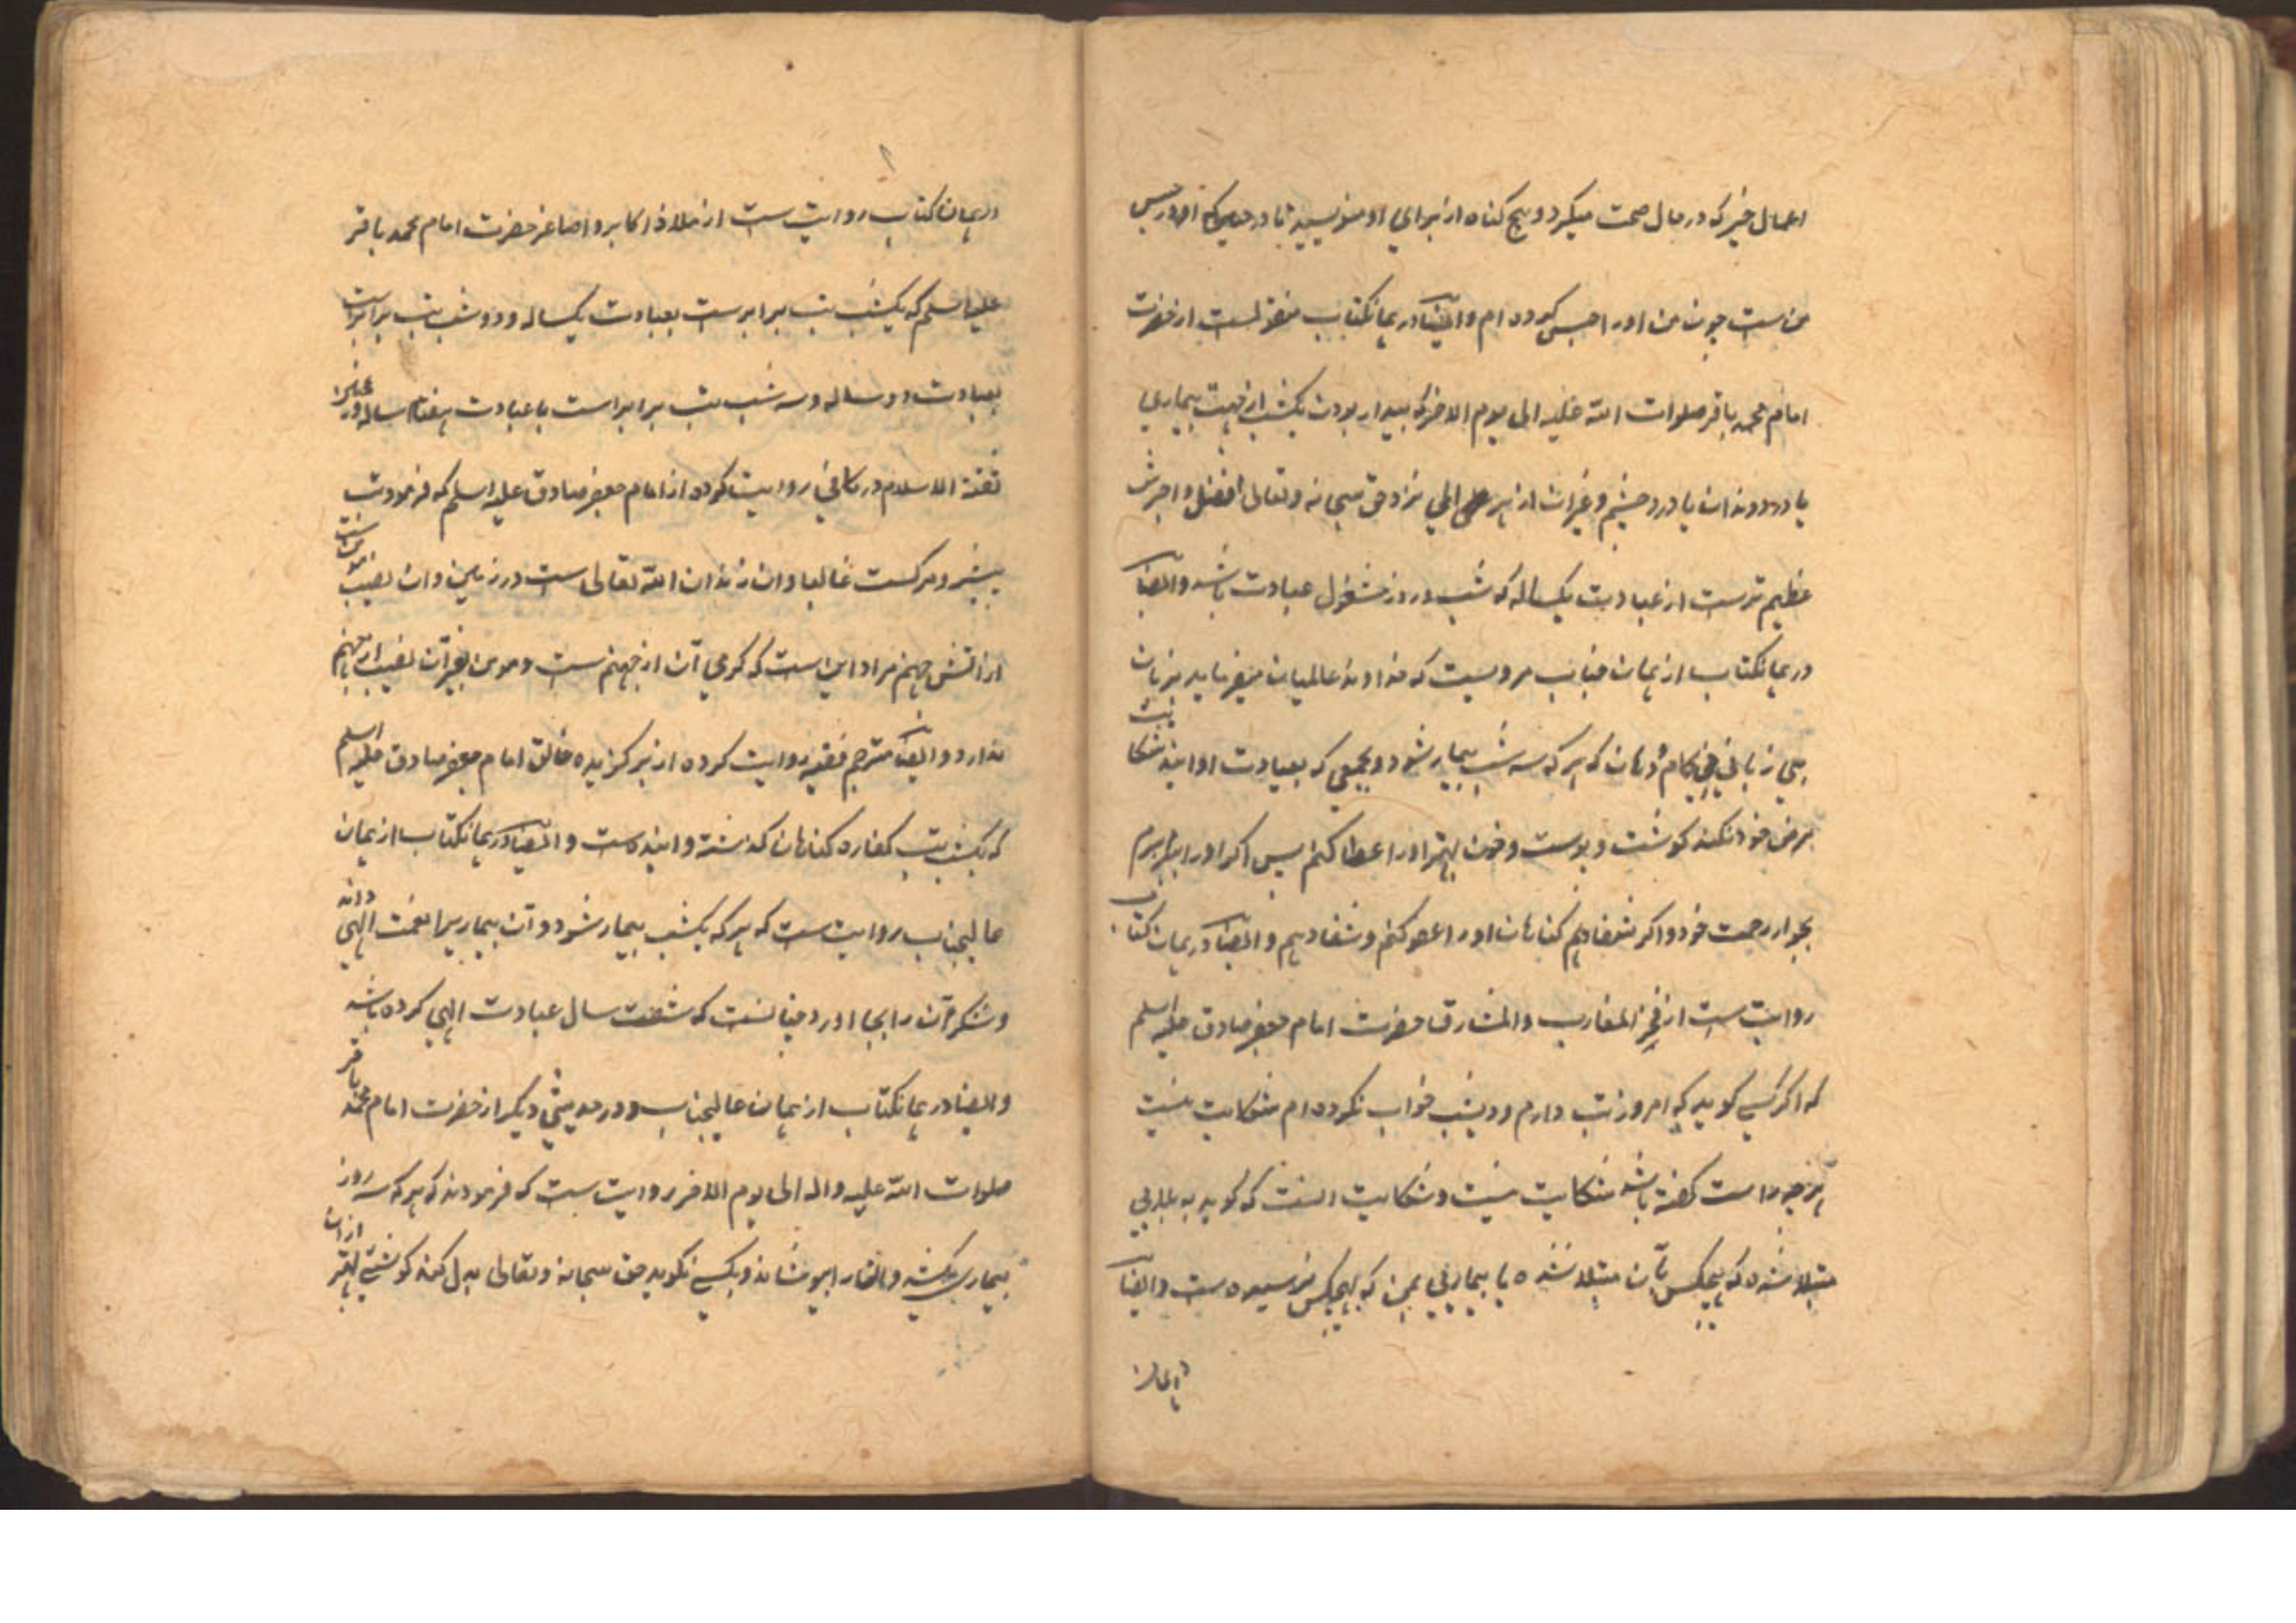 اعمال خیر که در حال صحت میکرد و هیچ کناه از برای او منویسید تا در حبس
من است چون من اورا حبس کرده ام و ایضا در همانکتاب منقولست از حضرت
امام محمد باقر صلوات الله علیه الی یوم الاخر که بیدار بودن یکشب از جهت بیماری
یا درد دندان یا درد چشم و غیران از نزد حق سبحانه و تعالی افضل و اجرش
عظیم ترست از عبادت یکساله که شب و روز مشغول عبادت باشد و ایضا
در همانکتاب از همان جناب مرویست که خداوند عالمیان میفرماید بزبان
بی زبانی بی کام و دهان که هر که سه شب بیمار شود و بجمعی که بعیادت او ایند شکایت
مرض خود نکند کوشت و پوست و خون بهتر اورا عطا کنم پس اکر اورا ببرم
بجوار رحمت خود و اکر شفا دهم کناهان اورا عفو کنم و شفا دهم و ایضا در همان کتاب
روایت ست از فخر المغارب و المشارق حضرت امام جعفر صادق علیه السلم
که اکر کسی کوید که امروز تب دارم و دیشب خواب نکرده ام شکایت نیست
هر چه راست کفته باشد شکایت نیست و شکایت انست که کوید به بلایی
مبتلا شده ام که هیچکس بآن مبتلا نشده یا بیماریی بمن که بهیچکس نرسیده ست و ایضا
در همان کتاب روایت ست از ملاذ اکابر و اصاغر حضرت امام محمد باقر
علیه السلم که یکشب تب برابرست بعبادت یکساله و دو شب تب برابرست
بعبادت دو ساله و سه شب تب برابر است با عبادت هفتاد ساله و
ثقة الاسلام در کافی روایت کرده از امام جعفر صادق علیه السلم که فرمود تب
پیش رو مرکست غالبا و ان زندان الله تعالی ست در زمین و ان نصیب مؤمنست
از اتش جهنم مراد این است که کرمی آن از جهنم ست و مومن بغیر آن نصیب از جهنم
ندارد و ایضا مترجم فقیه روایت کرده از برکزیده خالق امام جعفر صادق علیه السلم
که یکشب تب کفاره کناهان کذشته و اینده ست و ایضا در همانکتاب از همان
عالیجناب روایت ست که هر که یکشب بیمار شود و آن بیماریرا نعمت الهی داند
و شکر آن را بجا اورد چنانست که شصت سال عبادت الهی کرده باشد
و ایضا در همانکتاب از همان عالیجناب و در حدیثی دیکر از حضرت امام محمد باقر
صلوات الله علیه واله الی یوم الاخر روایت ست که فرمودند که هر که سه روز
بیماری بکشد و بکسی نکوید حق سبحانه و تعالی بدل کند کوشتی بهتر از ان